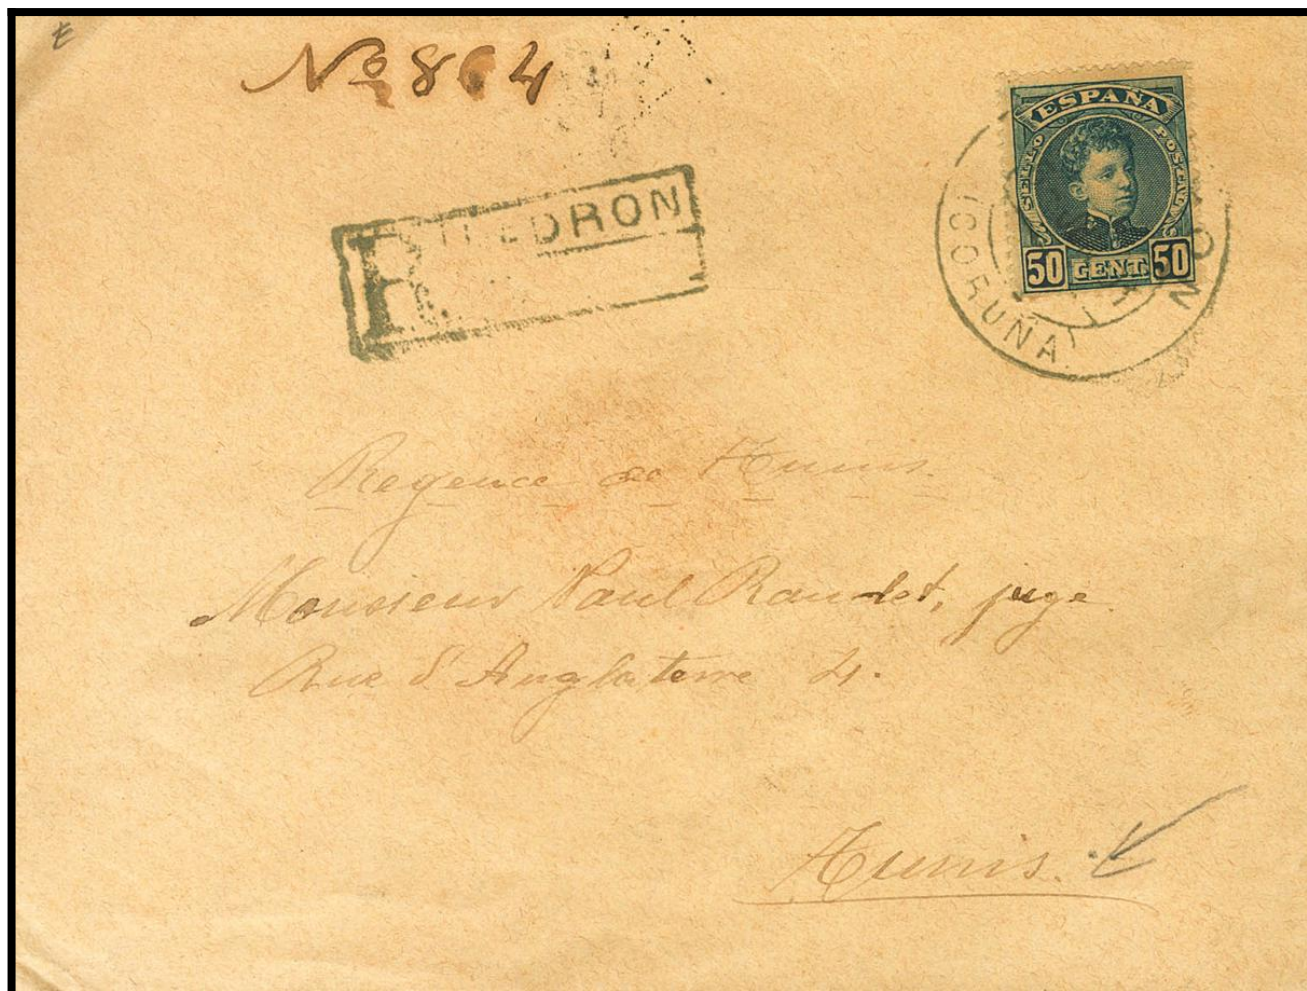 Nº 804
ESPAÑA
SELLO POSTAL
50 CENT. 50
(CORUÑA)
R
DRON
Regence de Tunis
Monsieur Paul Raudet, juge
Rue d'Angleterre 4.
Tunis.